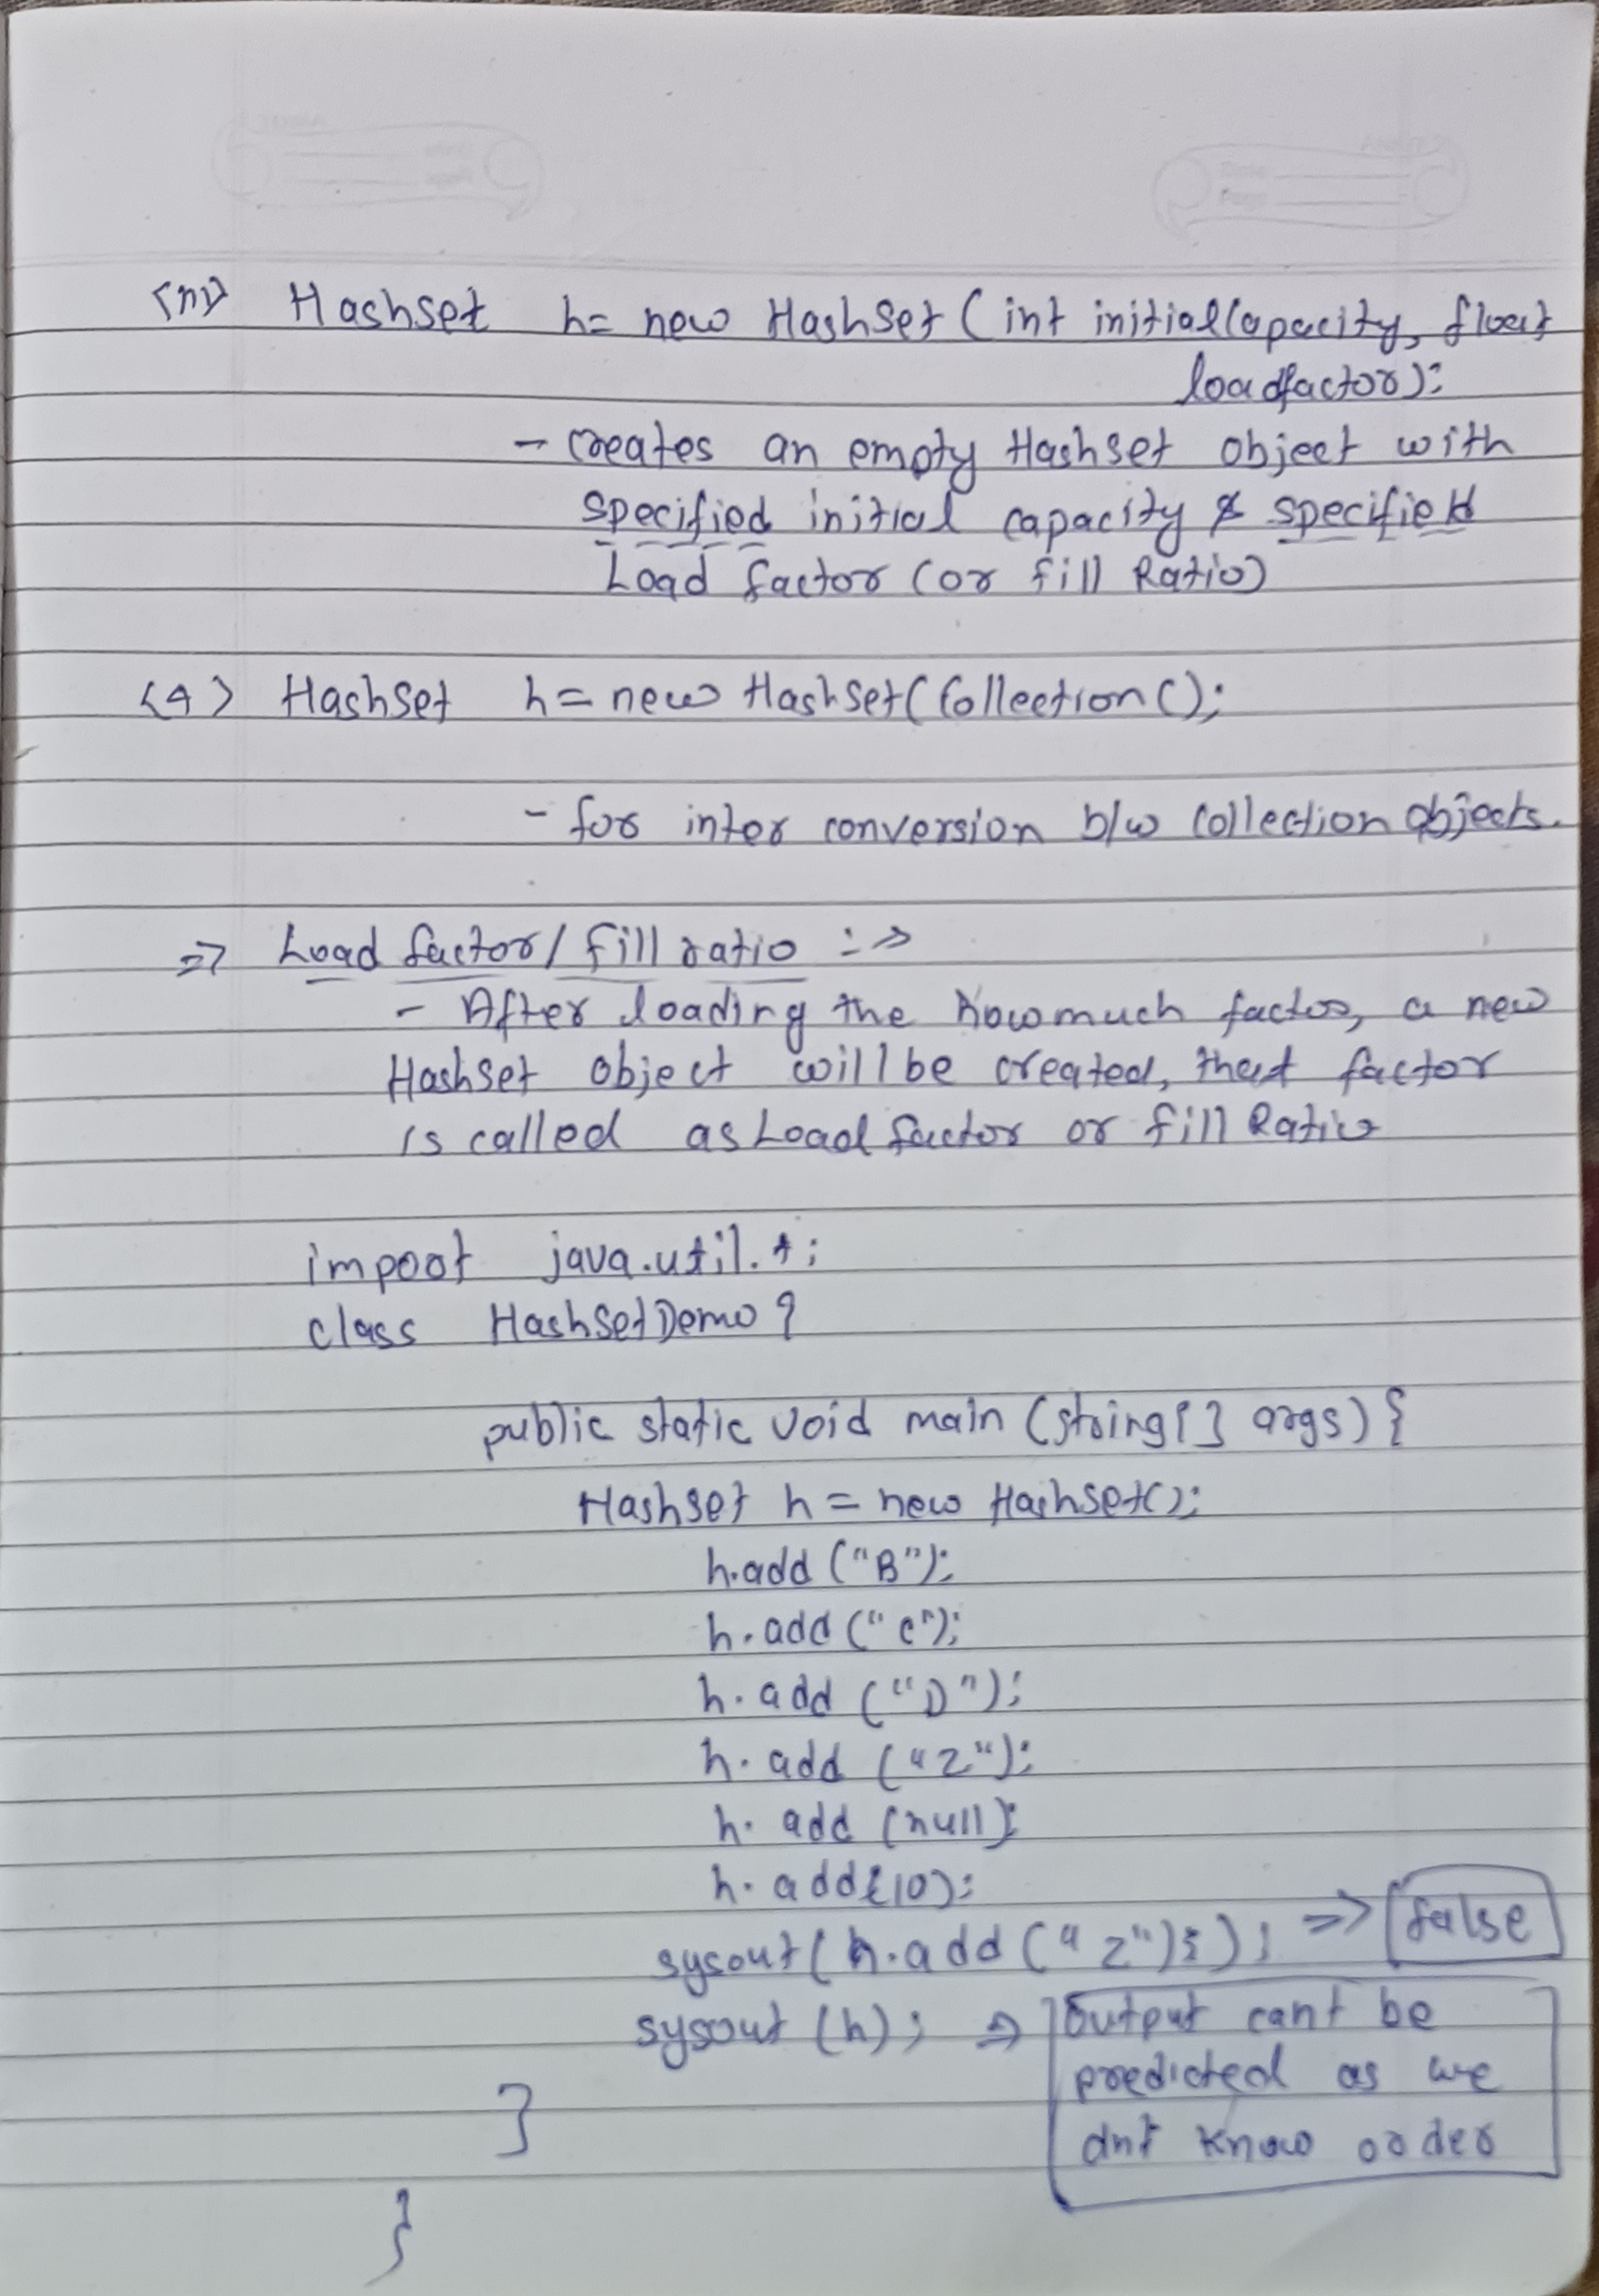 <3> Hashset h= new HashSet (int initialCapacity, float
loadfactor);
- creates an empty Hashset object with
specified initial capacity & specified
Load factor (or fill Ratio)
<4> HashSet h= new HashSet(Collection C);
- for inter conversion b/w Collection objects.
=> Load factor/ fill ratio :=>
- After loading the how much factor, a new
HashSet object will be created, that factor
is called as Load factor or fill Ratio
import java.util.*;
class HashSetDemo {
public static void main (string[] args) {
Hashset h = new Hashset();
h.add ("B");
h.add ("C");
h.add ("D");
h.add ("Z");
h.add (null);
h.add(10);
sysout( h.add ("Z"); ); => false
sysout (h); => Output cant be
predicted as we
dnt know order
}
}